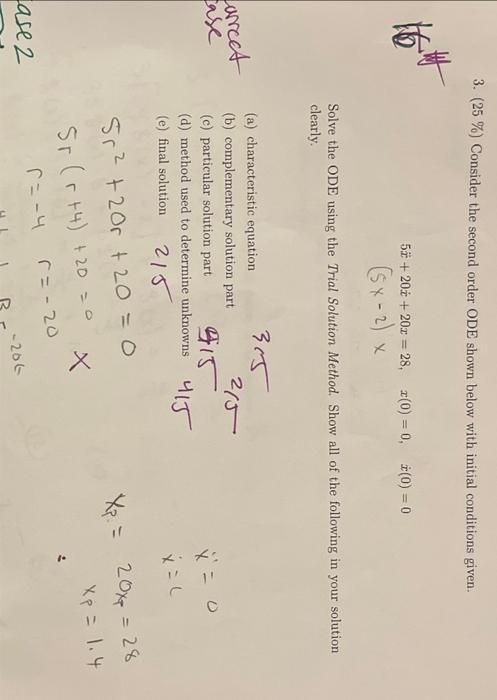 3. (25 %) Consider the second order ODE shown below with initial conditions given.
5ẍ + 20ẋ + 20x = 28, x(0) = 0, ẋ(0) = 0
(5x-2) x
Solve the ODE using the Trial Solution Method. Show all of the following in your solution
clearly.
(a) characteristic equation 3/5
(b) complementary solution part 2/5
(c) particular solution part 4/5
(d) method used to determine unknowns 4/5
(e) final solution 2/5
5r² + 20r + 20 = 0
5r(r+4) + 20 = 0 X
r = -4 r = -20
ẍ = 0
xp = 20xp = 28
xp = 1.4
ase 2